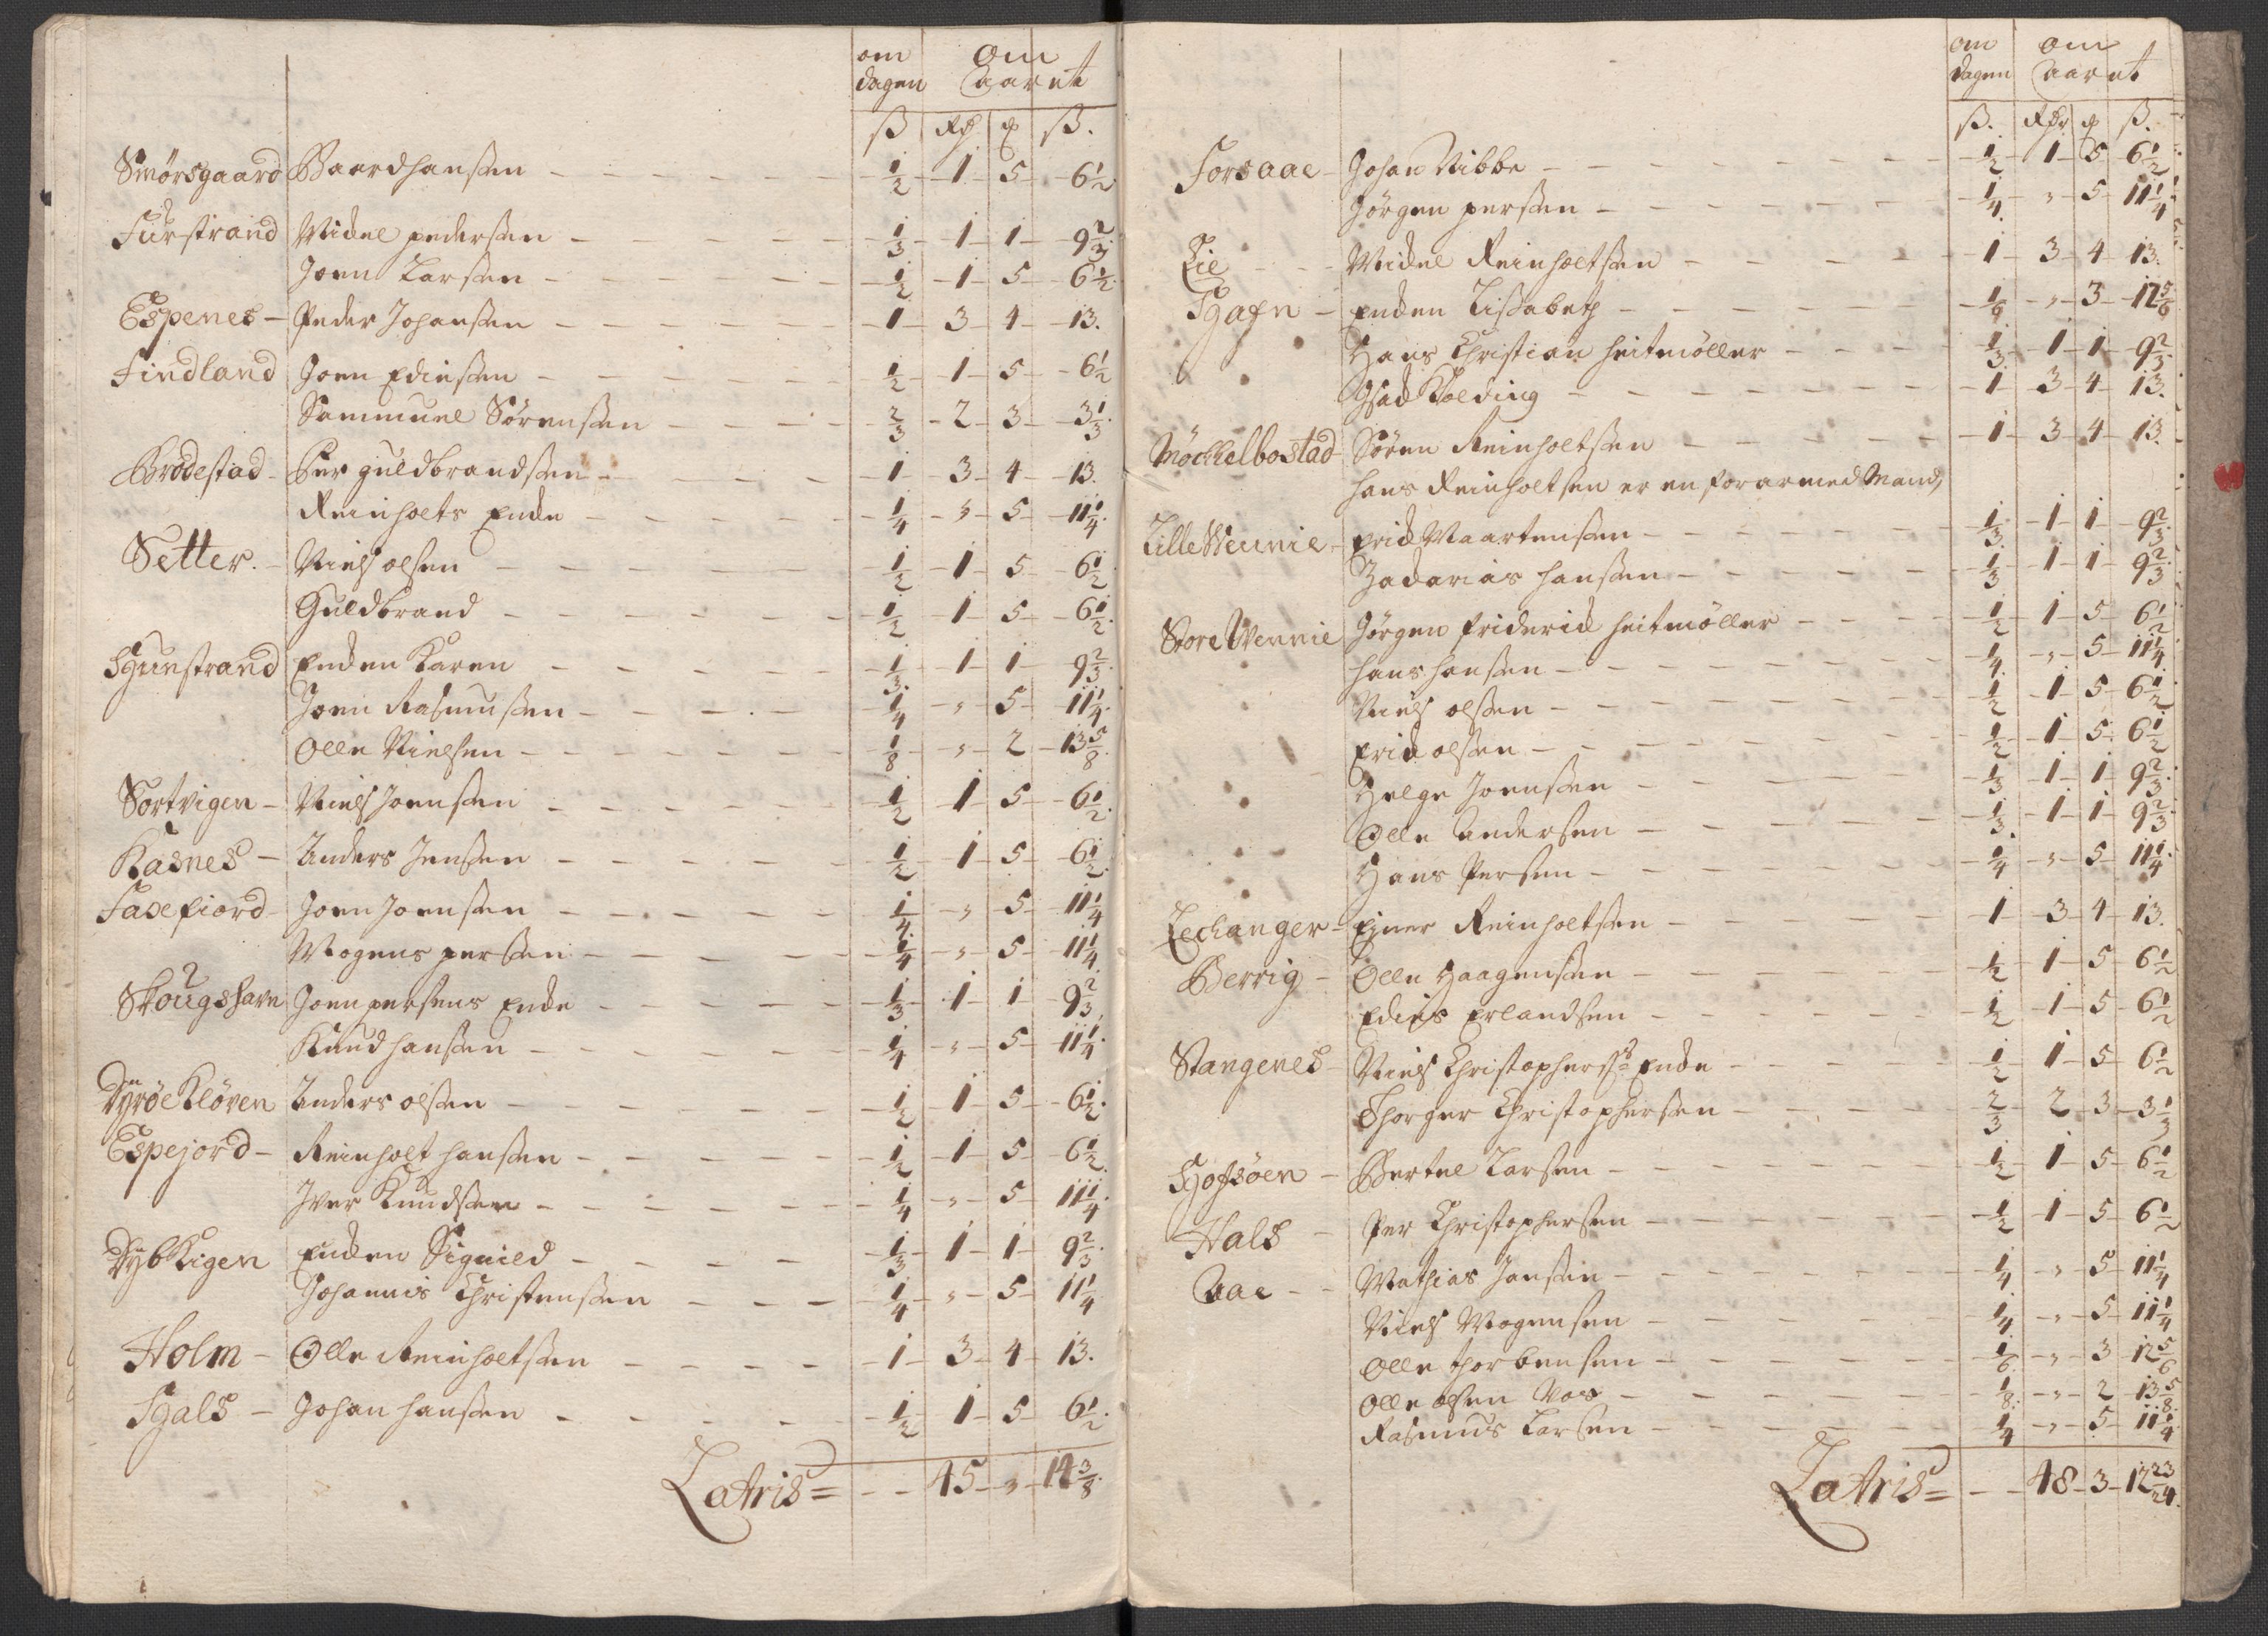 om Om
dagen Aaret
ß Rdr ₰ ß.
Smörsgaard Baard hansßen - 1/2 - 1 - 5 - 6 1/2
Furstrand Mickel pedersßen - 1/3 - 1 - 1 - 9 2/3
Joen Larsßen - 1/2 - 1 - 5 - 6 1/2
Espenes - Peder Johansßen - 1 - 3 - 4 - 13.
Findland Joen Edissßen - 1/2 - 1 - 5 - 6 1/2
Sammuel Sörensßen - 2/3 - 2 - 3 - 3 1/3
Brödestad - Per guldbrandsßen - 1 - 3 - 4 - 13.
Reinholts Encke - 1/4 - " - 5 - 11 1/4
Setter. - Niels olsen - 1/2 - 1 - 5 - 6 1/2
Guldbrand - 1/2 - 1 - 5 - 6 1/2
Encken Karen - 1/3 - 1 - 1 - 9 2/3
Joen Rasmusßen - 1/4 - " - 5 - 11 1/4
Olle Nielsen - 1/8 - " - 2 - 13 5/8
Sortvigen - Niels Joensßen - 1/2 - 1 - 5 - 6 1/2
Kasnes - Anders Jensßen - 1/2 - 1 - 5 - 6 1/2
Faxefiord - Joen Joensßen - 1/4 - " - 5 - 11 1/4
Mogens persßen - 1/4 - " - 5 - 11 1/4
Skougshavn Joen persens Encke - 1/3 - 1 - 1 - 9 2/3
Knud hansßen - 1/4 - " - 5 - 11 1/4
Dyröe Klöven Anders olsßen - 1/2 - 1 - 5 - 6 1/2
Espejord - Reinholt hansßen - 1/2 - 1 - 5 - 6 1/2
Iver Knudsßen - 1/4 - " - 5 - 11 1/4
Encken Signild - 1/3 - 1 - 1 - 9 2/3
Johannis Christensßen - 1/4 - " - 5 - 11 1/4
Holm - Olle Reinholtsßen - 1 - 3 - 4 - 13.
Johan hansßen - 1/2 - 1 - 5 - 6 1/2
Latris = - 45 - " - 14 3/8
om om
dagen Aaret
ß. Rdr ₰ ß.
Forsaae - Johan Ribbe - 1/2 - 1 - 5 - 6 1/2
Jörgen persßen - 1/4 - " - 5 - 11 1/4
Lie - Mickel Reinholtsßen - 1 - 3 - 4 - 13.
Encken Lisßabeth - 1/6 - " - 3 - 12 5/6
Hans Christian heitmöller - 1/3 - 1 - 1 - 9 2/3
Kolding - 1 - 3 - 4 - 13.
Möckelbostad Sören Reinholtsßen - 1 - 3 - 4 - 13.
hans Reinholtsen er en forarmed Mand,
Lille Wennie - Erick Maartensßen - 1/3 - 1 - 1 - 9 2/3
Zacharias hansßen - 1/3 - 1 - 1 - 9 2/3
Store Wennie Jörgen friderick heitmöller - 1/2 - 1 - 5 - 6 1/2
hans hansßen - 1/4 - " - 5 - 11 1/4
Niels olsßen - 1/2 - 1 - 5 - 6 1/2
Erick olsßen - 1/2 - 1 - 5 - 6 1/2
Helge Joensßen - 1/3 - 1 - 1 - 9 2/3
Olle Andersen - 1/3 - 1 - 1 - 9 2/3
Hans Persen - 1/4 - " - 5 - 11 1/4
Lechanger - Ejner Reinholtsßen - 1 - 3 - 4 - 13.
Berrig - Olle Haagensßen - 1/2 - 1 - 5 - 6 1/2
Edies Erlandsen - 1/2 - 1 - 5 - 6 1/2
Stangenes - Niels Christophersß: Encke - 1/2 - 1 - 5 - 6 1/2
Thorger Christophersen - 2/3 - 2 - 3 - 3 1/3
Hofsöen - Bertel Larsen - 1/2 - 1 - 5 - 6 1/2
Hals - Per Christophersen - 1/2 - 1 - 5 - 6 1/2
Aae - Mathias Jansßen - 1/4 - " - 5 - 11 1/4
Niels Mogensen - 1/4 - " - 5 - 11 1/4
Olle thorbensen - 1/6 - " - 3 - 12 5/6
Olle olsen Vos - 1/8 - " - 2 - 13 5/8
Rasmus Larsen - 1/4 - " - 5 - 11 1/4
Latris = - 48 - 3 - 12 23/24